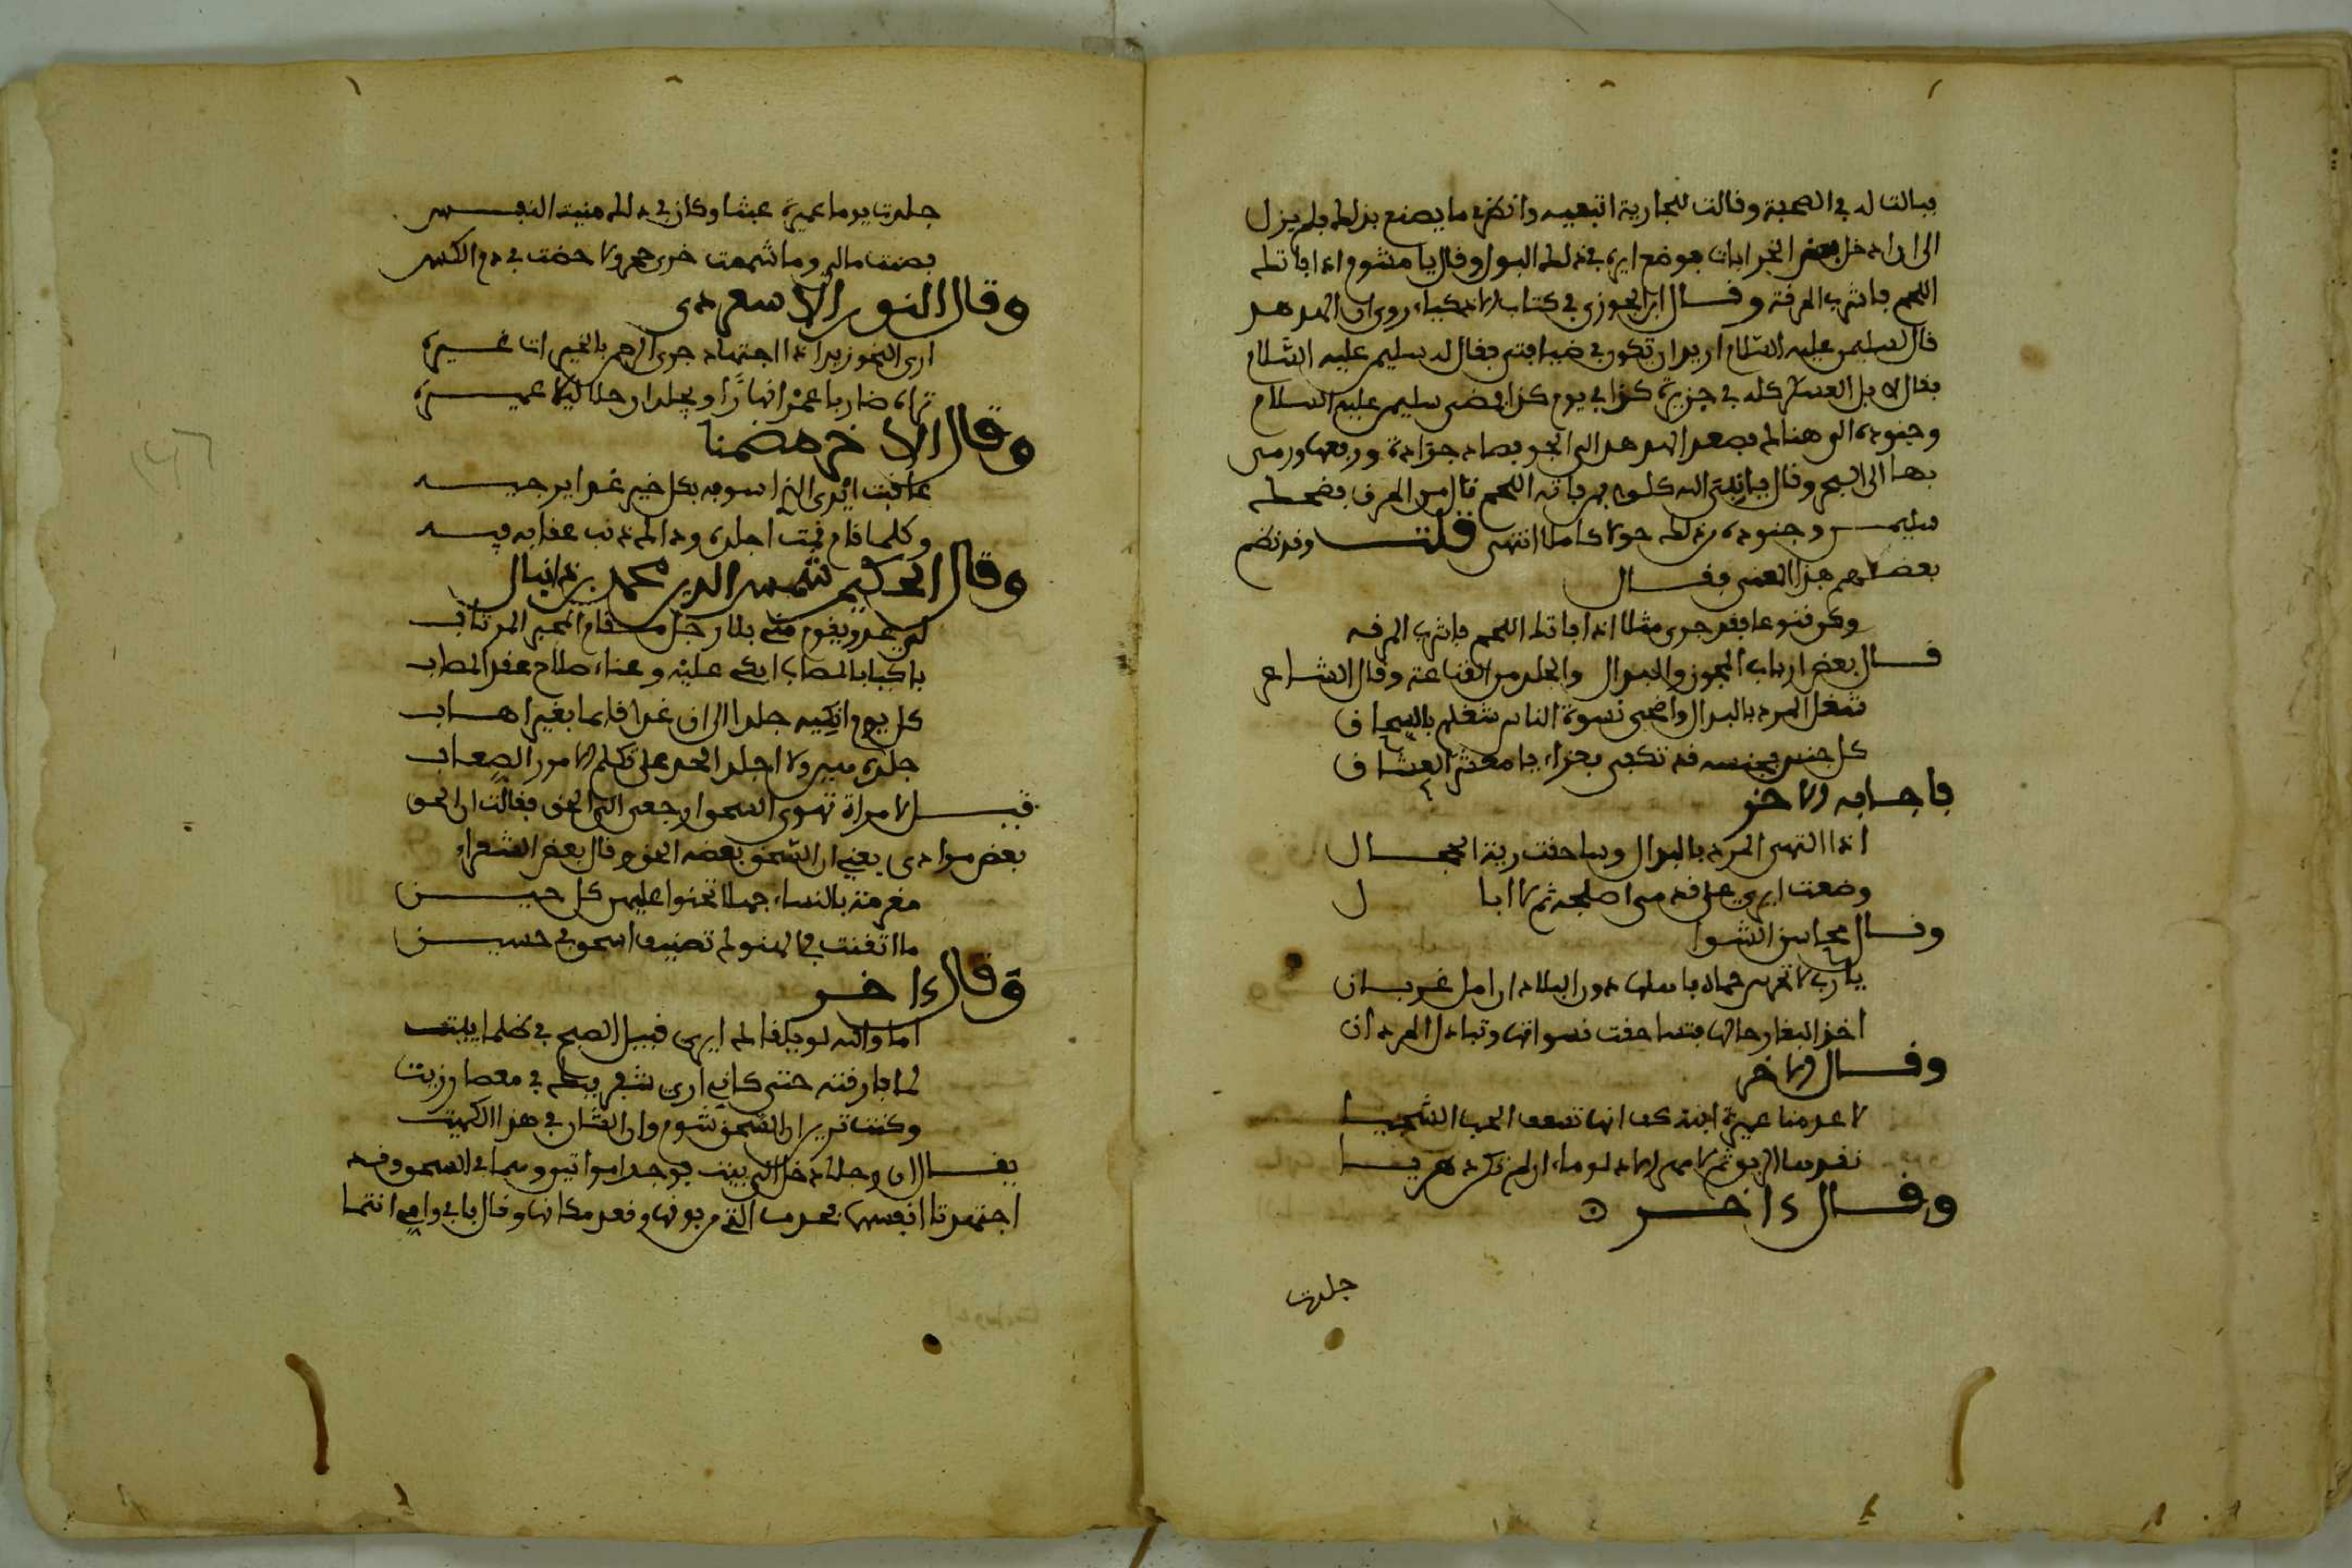 فبالت له في الصحفة وقالت للجارية اتبعيه وانظري ما يصنع بذلك فلم يزل
الى ان دخل بعض الخرابات فوضع ايره في ذلك البول وقال يا مشوم اذا فاتك
اللحم فاشرب المرقة وقال ابن الجوزي في كتاب الاذكياء روي ان الهدهد
قال لسليمن عليه السلام اريد ان تكون في ضيافتي فقال له سليمن عليه السلام
فقال لا بل العسكر كله في جزيرة كذا في يوم كذا فمضى سليمن عليه السلام
وجنوده الى هنالك فصعد الهدهد الى الجو فصاد جرادة ورفعها ورمى
بها الى البحر وقال يا نبي الله كلوا من فاته اللحم نال من المرق فضحك
سليمن وجنوده من ذلك حولا كاملا انتهى قلت وقد نظم
بعضهم هذا المعنى فقال
وكن قنوعا فقد جرى مثلا اذا فاتك اللحم فاشرب المرقه
قال بعض ارباب المجون والبدال والجلد من القناعة وقال الشاعر
شغل المرد بالبدال واضحى نسوة الناس شغلهم بالسحاق
كل جنس بجنسه قد تكفى بعزاء يا معشر العشاق
فاجابه الاخر
اذا التهى المرد بالبدال وساحقت ربة الحجال
وضعت ايري على قدمي اصلحه ثم لا ابال
وقال محاسن الشوا
يا رب لا تحرس حماه فاسلها دون البلاد ارامل غربان
اخذ البغا رجالها فتساحقت نسوانها وتبادل المردان
وقال الاخر
لا عدمنا عميرة ابنة كف انها تسعف المحب الشجيا
نقدها الريق ثم لا مهر الا دلو ماء ان لم تكن دهريا
وقال ءاخر
جلدت
جلدت يوما عميرة عبثا وكان في ذلك منية النفس
فصنت مالي وما شممت خرى حجر ولا خضت في دم الكس
وقال النور الاسعردي
ارى النحو زيدا ذا اجتهاد جرى الرحمن بالخيرات غيره
تراه ضاربا عمرا نهارا ويجلد ان خلا ليلا عميره
وقال الاخر مضمنا
عاقبت ايري الذي اسوفه بكل خير غدا يرجيه
وكلما قام قمت اجلده وذاك ذنب عقابه فيه
وقال الحكيم شمس الدين محمد بن دانيال
لي عمر ويقوم مني بلا رجل مقام المحير المرتاب
باكيا بالمصاب ابكي عليه وعناء صلاح عقد المصاب
كل يوم وانكيه جلدا الى ان غدا قايما بغير اهاب
جلدة ميرولا اجلد الحد على تلكم الامور الصعاب
قيل لامراة تهوى السحق ارجعي الى الحق فقالت ان الحق
بعض مرادي يعني ان السحق بعضه الحق وقال بعض الشعراء
مغرمة بالنساء جهلا تحنوا عليهن كل حين
ما اتقنت في النحو لم تضيف اسحق في حسين
وقال ءاخر
اما والله لو يلقاك ايري قبيل الصبح في ظلماء بيت
لما فارقته حتى كاني ارى شعر بيطك في معصار زيت
وكنت تريد ان السحق شوم وان الشان في هذا الكميت
يقال ان رجلا دخل الى بيت فوجد امراتين وهما في السحق وقد
اجتهدتا انفسهما فجذب التي من فوق وقعد مكانها وقال بابي وامي انتما